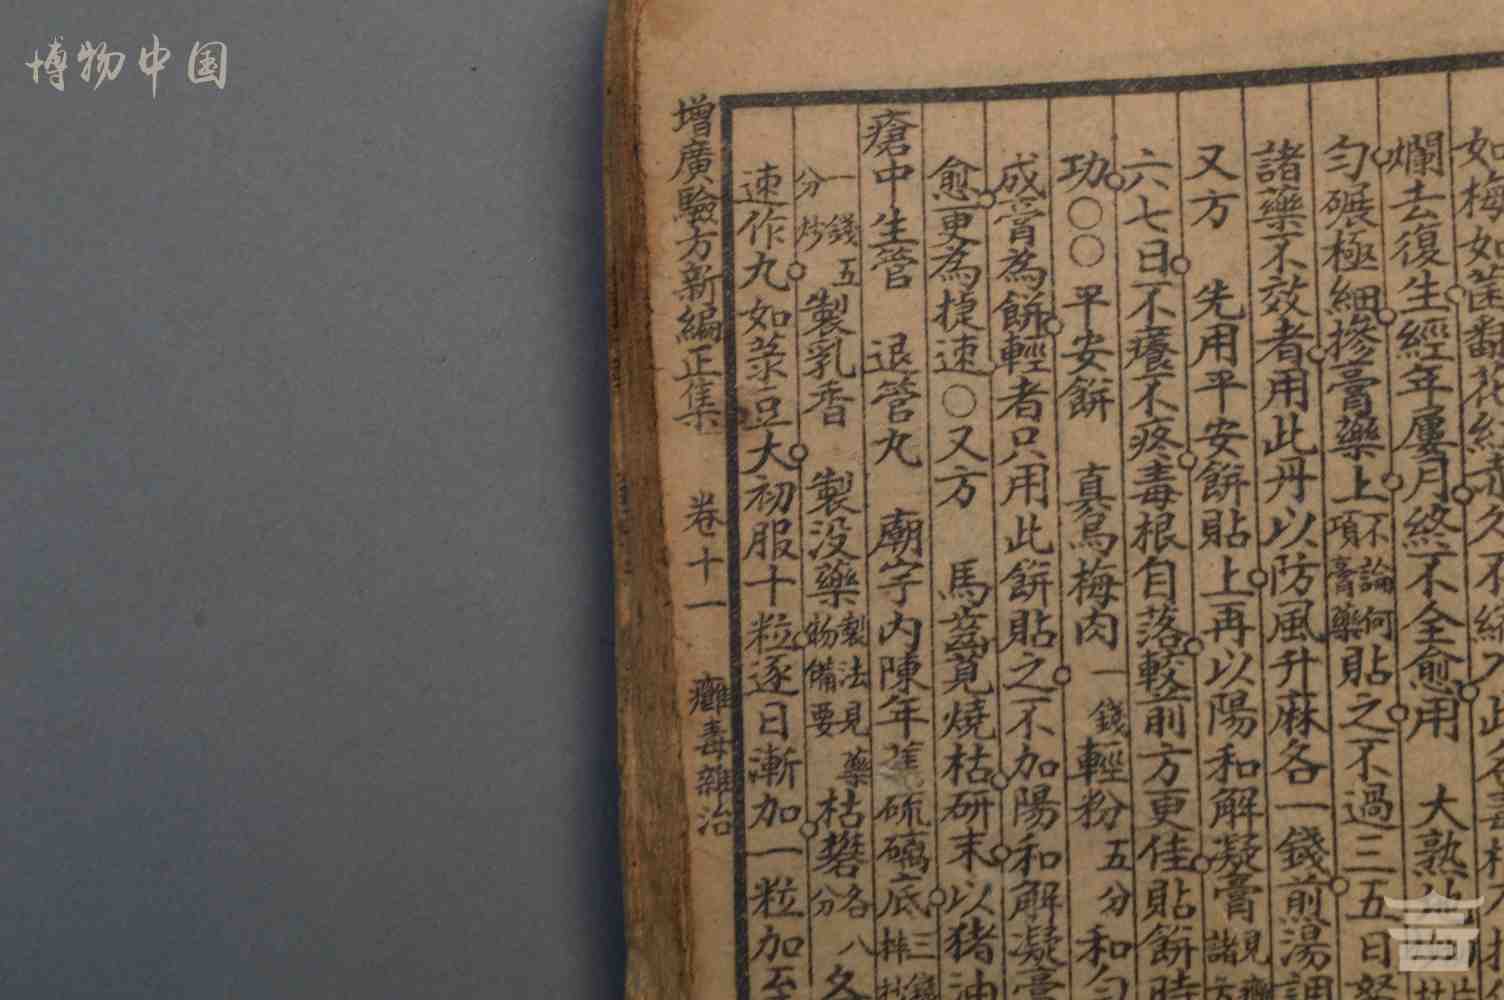 博物中国
如梅如菌翻花紅赤久不
爛去復生經年屢月終不全愈用　大熟
勻碾極細摻膏藥上不論何項膏藥貼之不過三五日
諸藥不效者用此丹以防風升麻各一錢煎湯調
又方　先用平安餅貼上再以陽和解凝膏見
六七日不癢不疼毒根自落較前方更佳貼餅時
功○○平安餅　真烏梅肉一錢輕粉五分和勻
成膏為餅輕者只用此餅貼之不加陽和解凝膏
愈更為捷速○又方　馬齒莧燒枯研末以猪油
瘡中生管　退管丸　廟宇內陳年硫璃底三錢
一錢五分炒　製乳香　製没藥製法見藥物備要枯礬各八分
速作丸如菉豆大初服十粒逐日漸加一粒加至
增廣驗方新編正集　卷十一　癰毒雜治